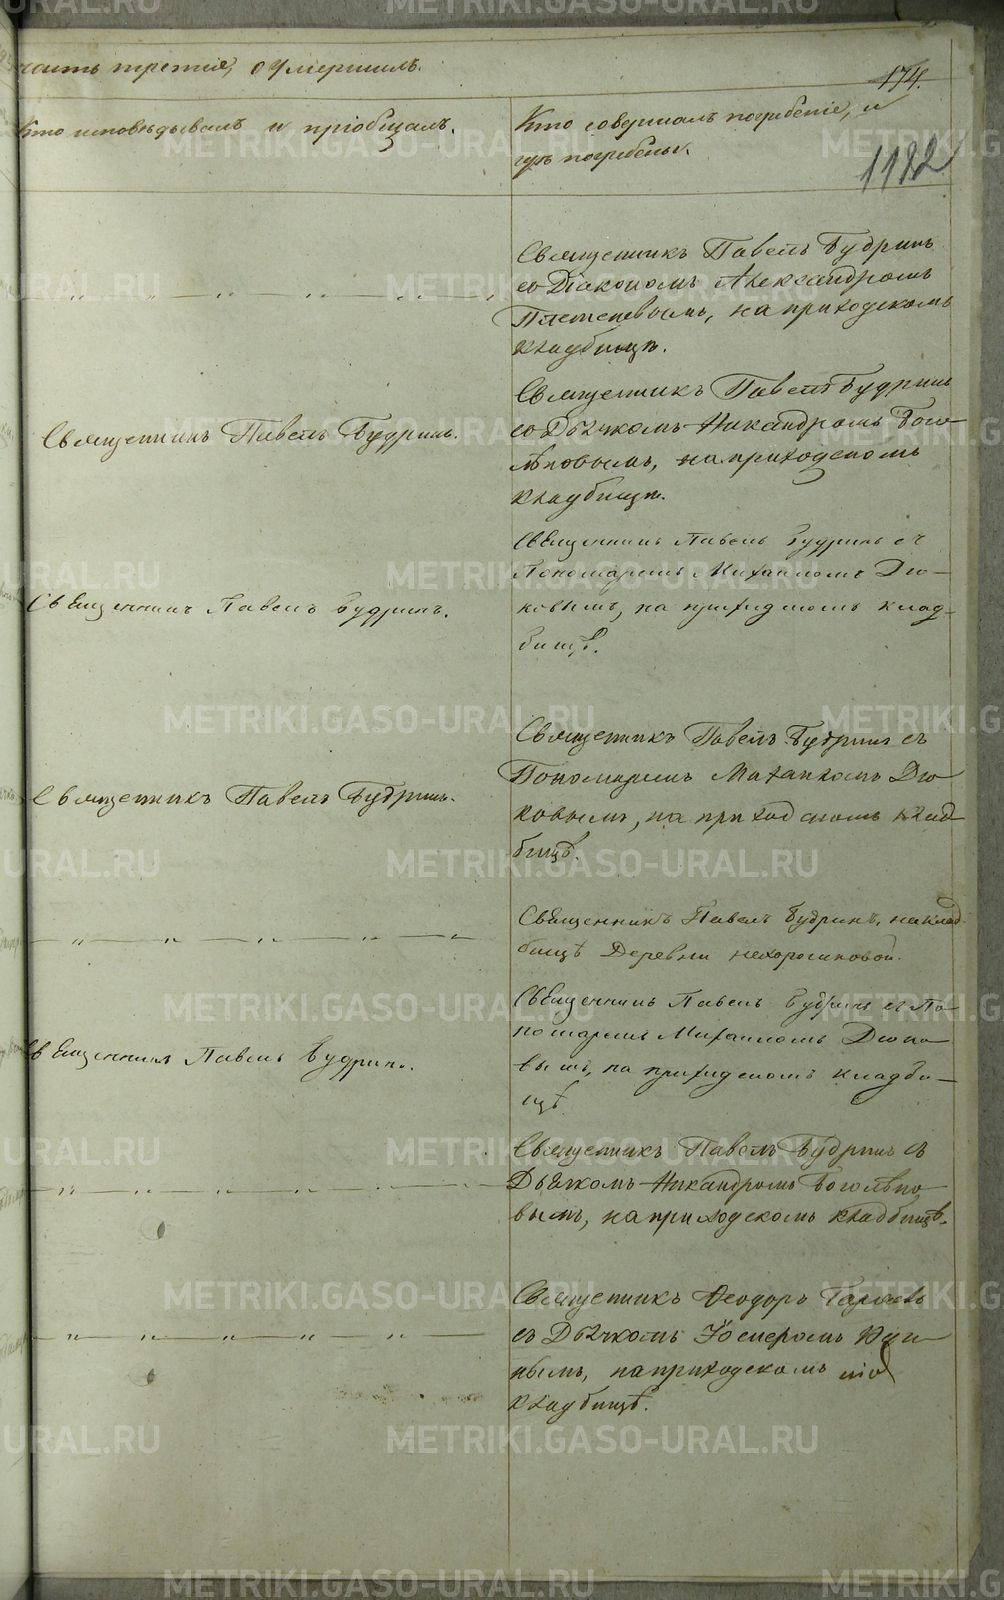 часть третія, о умершихъ.
174.
Кто исповѣдывалъ и пріобщалъ.
Кто совершалъ погребеніе, и
гдѣ погребены.
1182
Священникъ Павелъ Будринъ
со Діакономъ Александромъ
Плетеневымъ, на приходскомъ
кладбищѣ.
Священникъ Павелъ Будринъ.
Священникъ Павелъ Будринъ
со Дьячкомъ Никандромъ Бого-
лѣповымъ, на приходскомъ
кладбищѣ.
Священникъ Павелъ Будринъ.
Священникъ Павелъ Будринъ съ
Пономаремъ Михаиломъ Дю-
ковымъ, на приходскомъ клад-
бищѣ.
Священникъ Павелъ Будринъ.
Священникъ Павелъ Будринъ съ
Пономаремъ Михаиломъ Дю
ковымъ, на приходскомъ клад
бищѣ.
Священникъ Павелъ Будринъ, на клад
бищѣ Деревни Нехорошковой.
Священникъ Павелъ Будринъ.
Священникъ Павелъ Будринъ съ По
номаремъ Михаиломъ Дюко
вымъ, на приходскомъ кладби-
щѣ
Священникъ Павелъ Будринъ съ
Дьячкомъ Никандромъ Боголѣпо
вымъ, на приходскомъ кладбищѣ.
Священникъ Ѳеодоръ
съ Дьячкомъ
нымъ, на приходскомъ
кладбищѣ.
METRIKI.GASO-URAL.RU